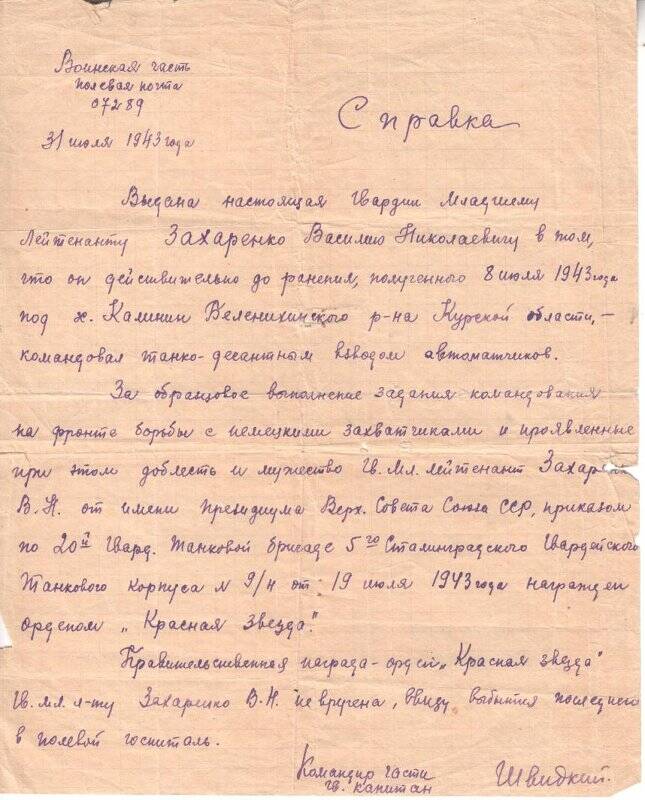 Воинская часть
полевая почта
07289
31 июля 1943 года
Справка
Выдана настоящая Гвардии Младшему
Лейтенанту Захаренко Василию Николаевичу в том,
что он действительно до ранения, полученного 8 июля 1943 года
под х. Калинин Беленихинского р-на Курской области, -
командовал танко-десантным взводом автоматчиков.
За образцовое выполнение задания командования
на фронте борьбы с немецкими захватчиками и проявленные
при этом доблесть и мужество Гв. Мл. лейтенант Захарен
В.Н. от имени президиума Верх. Совета Союза ССР, приказом
по 20й Гвард. Танковой бригаде 5го Сталинградского Гвардейского
Танкового корпуса N 9/н от 19 июля 1943 года награжден
орденом „Красная звезда".
Правительственная награда - орден „Красная звезда"
Гв. мл. л-ту Захаренко В.Н. не вручена, ввиду выбытия последнего
в полевой госпиталь.
Командир части
гв. капитан Швидкий.